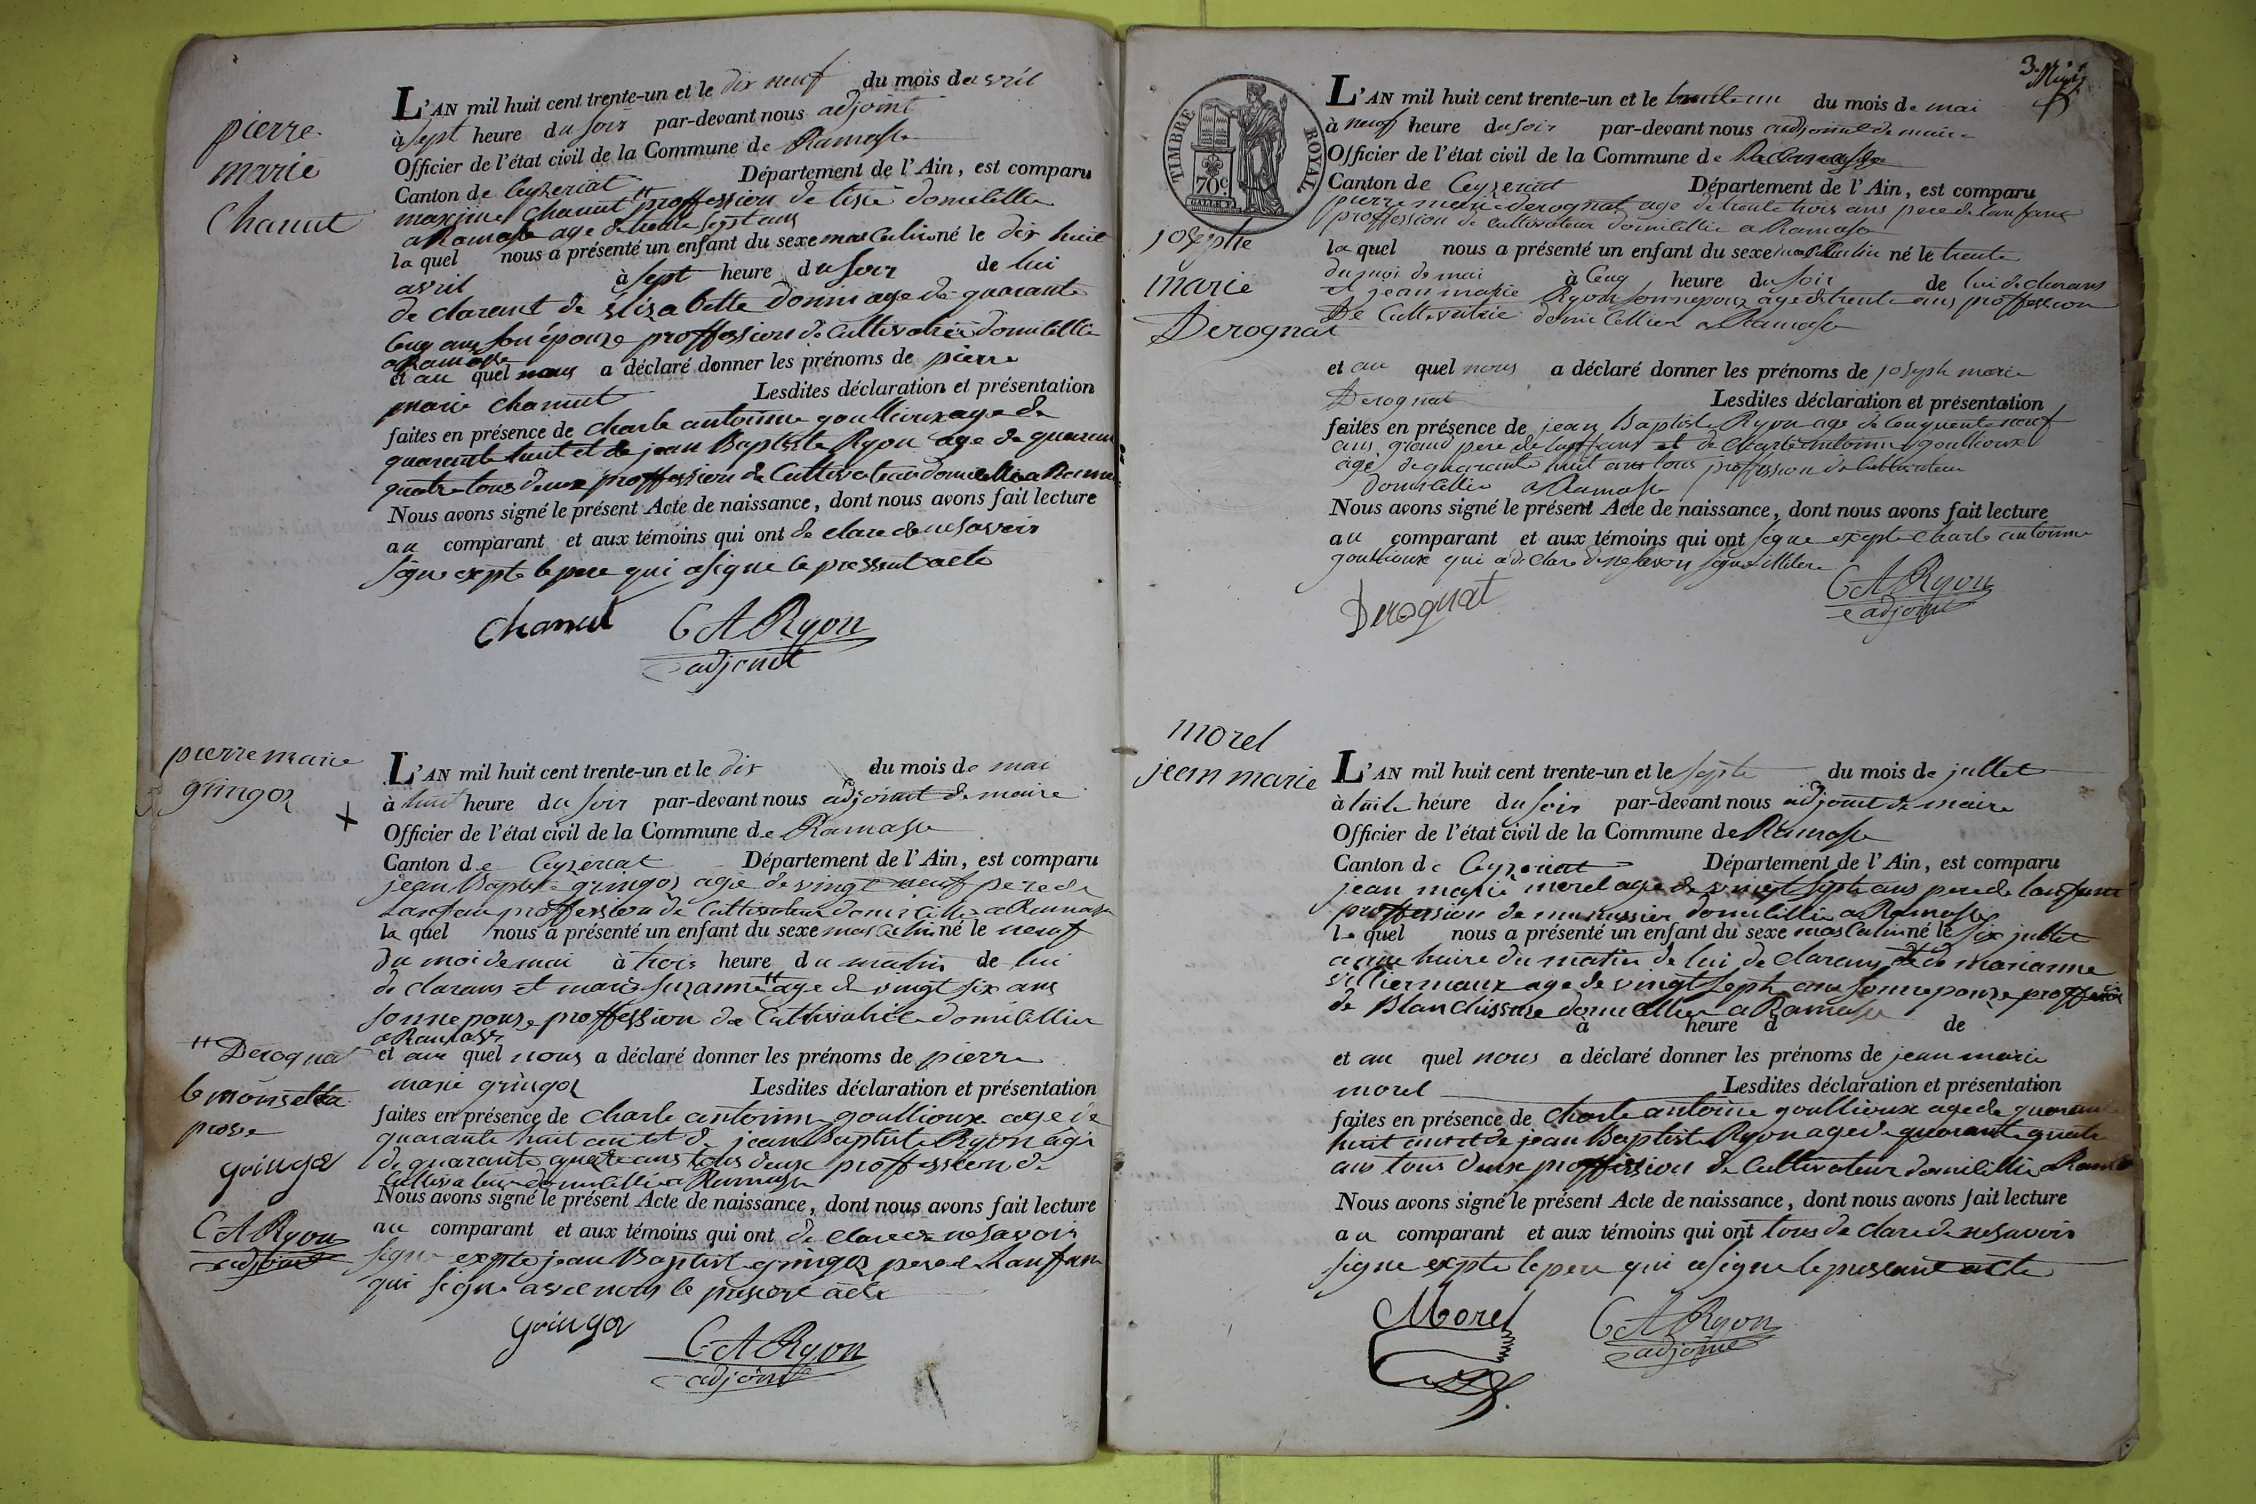 pierre
marie
Chanut
L'AN mil huit cent trente-un et le dix neuf du mois de avril
à sept heure du soir par-devant nous adjoint
Officier de l'état civil de la Commune de Ramasse
Canton de Ceyzeriat Département de l'Ain, est comparu
maxime chanut " proffession de domicillie
a Ramasse age de trente sept ans
la quel nous a présenté un enfant du sexe masculin né le dix huit
avril à sept heure du soir de lui
de clarent de Élizabette donni age de quarante
cenq ans son épouze proffession de Cultivatrice domicillie
a Ramasse
et au quel nous a déclaré donner les prénoms de pierre
marie chanut Lesdites déclaration et présentation
faites en présence de charle antoinne goullioux age de
quarente huit et de jean Baptiste Ryon age de quaran
quatre tous deux proffession de Cultivateur domicillie a Rama
Nous avons signé le présent Acte de naissance, dont nous avons fait lecture
au comparant et aux témoins qui ont de clare de ne savoir
signe expte le pere qui a signe le pressent acte
Chanut CA Ryon
adjoint
pierre marie
gringoz
L'AN mil huit cent trente-un et le dix du mois de mai
à huit heure du soir par-devant nous adjoint de maire
Officier de l'état civil de la Commune de Ramasse
Canton de Ceyzeriat Département de l'Ain, est comparu
jean Baptiste gringoz age de vingt neuf pere de
lanfan proffession de Cultivateur domicillie a Ramasse
la quel nous a présenté un enfant du sexe masculin né le neuf
du moi de mai à trois heure du matin de lui
de clarans et marie suzanne " age de vingt six ans
sonne pouze proffession de Cultivatrice domicillier
a Ramasse
et au quel nous a déclaré donner les prénoms de pierre
marie gringoz Lesdites déclaration et présentation
faites en présence de charle antoinne goullioux age de
quarante huit an et de jean Baptiste Ryon age
de quarante quatre ans tous deux proffession de
Cultivateur domicillie a Ramasse
Nous avons signé le présent Acte de naissance, dont nous avons fait lecture
au comparant et aux témoins qui ont de clare de ne savoir
signe expte jean Baptiste gringoz pere de lanfan
qui signe avec nous le present acte
gringoz CA Ryon
adjoint
" Derognat
gringoz
CA Ryon
adjoint
3
TIMBRE ROYAL
70c
josephe
marie
Derognat
L'AN mil huit cent trente-un et le trente un du mois de mai
à neuf heure du soir par-devant nous adjoint de maire
Officier de l'état civil de la Commune de Ramasse
Canton de Ceyzeriat Département de l'Ain, est comparu
pierre marie derognat age de trente trois ans pere de lanfant
proffession de cultivateur domicillie a Ramasse
la quel nous a présenté un enfant du sexe masculin né le trente
du moi de mai à cenq heure du soir de lui de clarans
et jean marie Ryon sonnepouz age de trente ans proffession
de Cultivatrice domicillier a Ramasse
et au quel nous a déclaré donner les prénoms de joseph marie
Derognat Lesdites déclaration et présentation
faites en présence de jean Baptiste Ryon age de cenquente neuf
ans grand pere de lanffans et de charle antoinne goullioux
age de quarante huit ans tous proffession de Cultivateur
domicillie a Ramasse
Nous avons signé le présent Acte de naissance, dont nous avons fait lecture
au comparant et aux témoins qui ont signe expte charle antoinne
goullioux qui a de clare de ne savoir signe
Derognat CA Ryon
adjoint
morel
jean marie
L'AN mil huit cent trente-un et le septe du mois de jullet
à huite heure du soir par-devant nous adjoint de maire
Officier de l'état civil de la Commune de Ramasse
Canton de Ceyzeriat Département de l'Ain, est comparu
jean marie morel age de vingt septe ans pere de lanfant
proffession de menussier domicillie a Ramasse
le quel nous a présenté un enfant du sexe masculin né le six jullet
a une huire du matin de lui de clarans et de marianne
villiermaux age de vingt septe ans sonnepouze proffession
de Blanchissuse domicillier a Ramasse
à heure d de
et au quel nous a déclaré donner les prénoms de jean marie
morel Lesdites déclaration et présentation
faites en présence de charle antoine goullioux age de quarante
huit ans et de jean Baptiste Ryon age de quarante quatre
ans tous deux proffission de Cultivateur domicillie a Ramasse
Nous avons signé le présent Acte de naissance, dont nous avons fait lecture
au comparant et aux témoins qui ont tous de clare de ne savoir
signe expte le pere qui a signe le pressant acte
Morel CA Ryon
adjoint